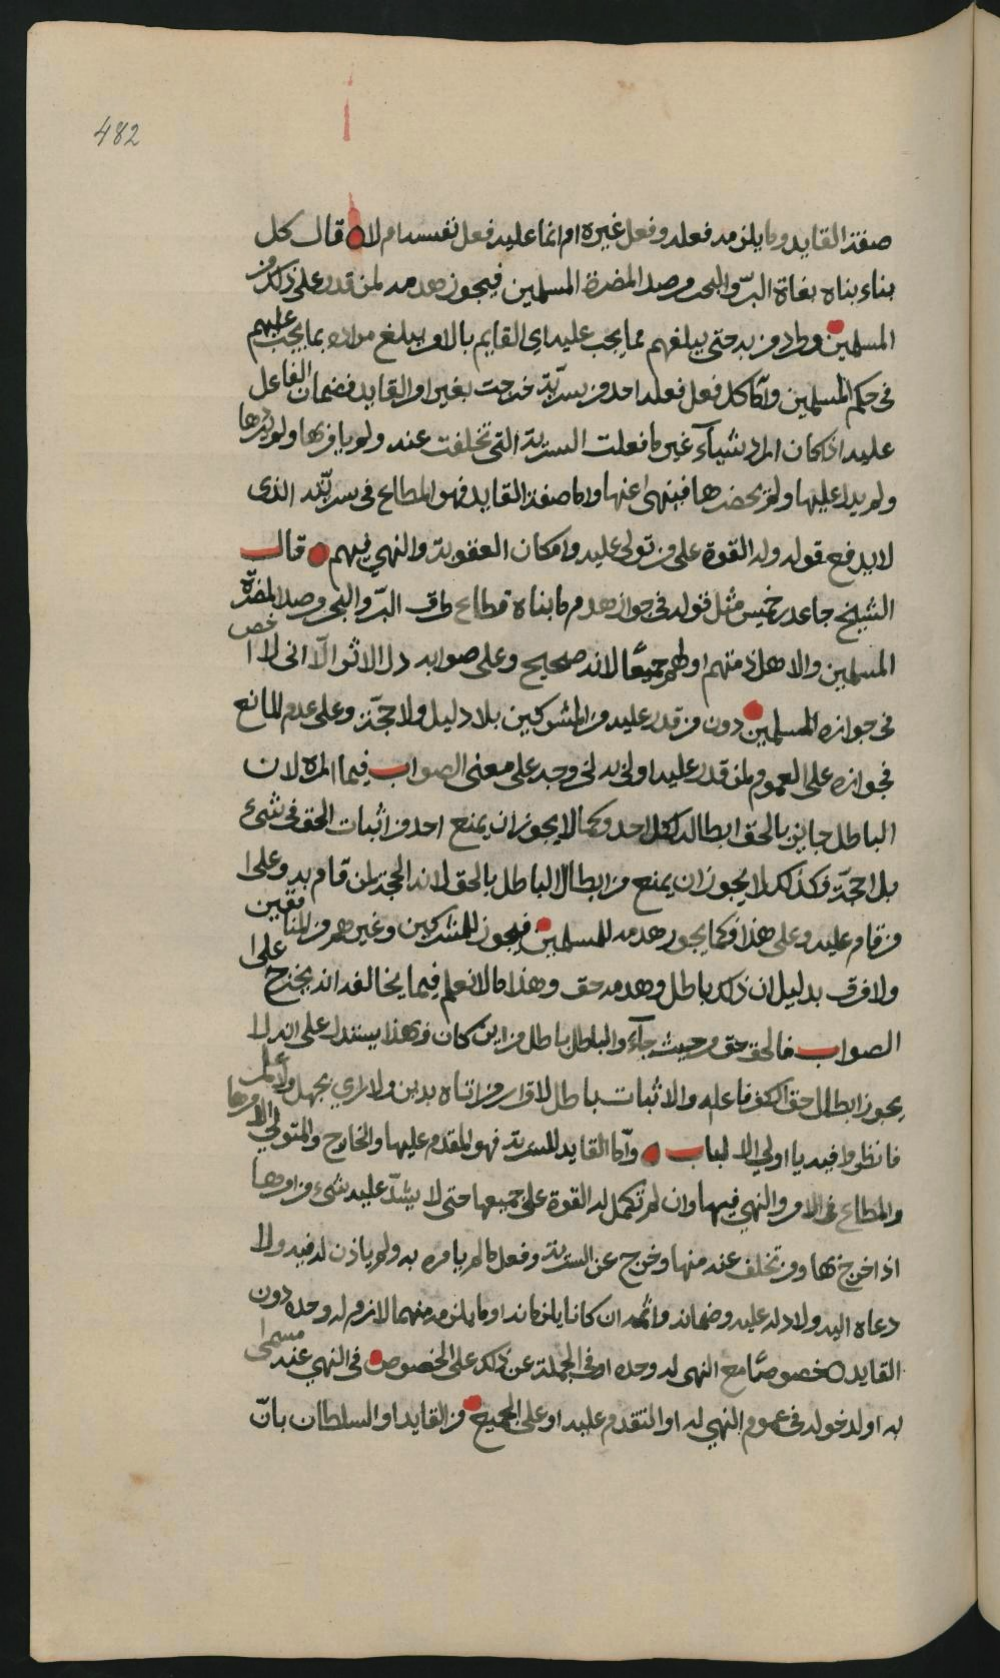 482
صفة القايد وما يلزمه فعله وفعل غيره ام انما عليه فعل نفسه ام لا قال كل
بناء بناه بغاة البر والبحر مرصد المضرة المسلمين فيجوز هدمه لمن قدر على ذلك من
المسلمين وطرد من به حتى يبلغهم مما يجب عليه اي القايم بالامر يبلغ مراده بما يجب عليهم
في حكم المسلمين واما كل فعل فعله احد من سرية خرجت بغير امر القايد فضمان الفاعل
عليه اذا كان اراد شيأ غير ما فعلت السرية التي تخلفت عنه ولم يامرها ولم
ولم يدل عليها ولم يحضرها فينهى عنها واما صفة القايد فهو المطاع في سريته الذي
لا يدفع قوله وله القوة على من تولى عليه وامكان العقوبة والنهي فيهم قال
الشيخ جاعد بن خميس مثل قوله في جواز هدم ما بناه قطاع طرق البر والبحر مرصد المضرة
المسلمين والاهل ذمتهم او لهم جميعا لانه صحيح وعلى صوابه دل الاثر الا اني لا اخص
في جوازه المسلمين دون من قدر عليه من المشركين بلا دليل ولا حجة وعلى عدم المانع
فجوازه على العموم لمن قدر عليه اولى به لخروجه على معنى الصواب فيما اراه لان
الباطل جايز بالحق ابطاله لكل احد وكما لا يجوز ان يمنع احد من اثبات الحق في شيء
بلا حجة فكذلك لا يجوز ان يمنع من ابطال الباطل بالحق لانه الحجة لمن قام به وعلى
من قام عليه وعلى هذا فكما يجوز هدمه للمسلمين فيجوز للمشركين وغيرهم من المنافقين
ولا فرق بدليل ان ذلك باطل وهدمه حق وهذا ما لا نعلم فيما يخالفه انه يخرج على
الصواب فالحق حق من حيث جاء والباطل باطل من اين كان وبهذا يستدل على انه لا
يجوز ابطال حق الكفر فاعله والا اثبات باطل لاقرار من اتاه بدين ولا براي بجهل ولا علم
فانظروا فيه يا اولي الالباب واما القايد للسرية فهو المقدم عليها والخارج والمتولي لامرها
والمطاع في الامر والنهي فيها وان لم تكمل له القوة على جميعها حتى لا يشذ عليه شيء من امرها
اذا خرج بها ومن تخلف عنه منها وخرج عن السرية وفعل ما لم يامره به ولم ياذن له فيه ولا
دعاه اليه ولا دله عليه وضمانه واثمه ان كانا يلزمانه او ما يلزمه منهما لازم له وحده دون
القايد خصوصا مع النهي له وحده او في الجملة عن ذلك على الخصوص في النهي عنه مسمى
به او لدخوله في عموم النهي له او التقدم عليه او على الجميع من القايد او السلطان بان